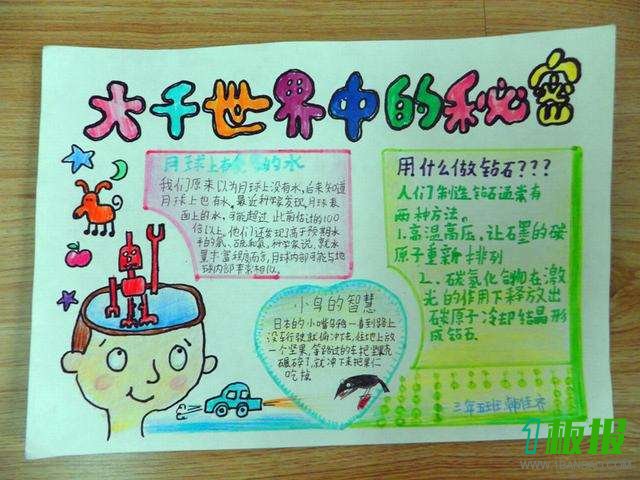 大千世界中的秘密
月球上有 的水
我们原来以为月球上没有水,后来知道
月球上也有水。最近科学家发现,月球表
面上的水,可能超过此前估计的100
倍以上。他们还发现了高于预期水
平的氯、硫和氟,科学家说,就水
量丰富程度而言,月球内部可能与地
球内部非常相似。
用什么做钻石???
人们制造钻石通常有
两种方法。
1.高温高压,让石墨的碳
原子重新排列
2、碳氢化合物在激
光的作用下释放出
碳原子冷却结晶形
成钻石
小鸟的智慧
日本的小嘴乌鸦一看到路上
没车行驶就俯冲下去,往地上放
一个坚果,等路过的车把坚果
碾碎了,就冲下来把果仁
吃掉
三年五班
1板报
WWW.1BANBAO.COM